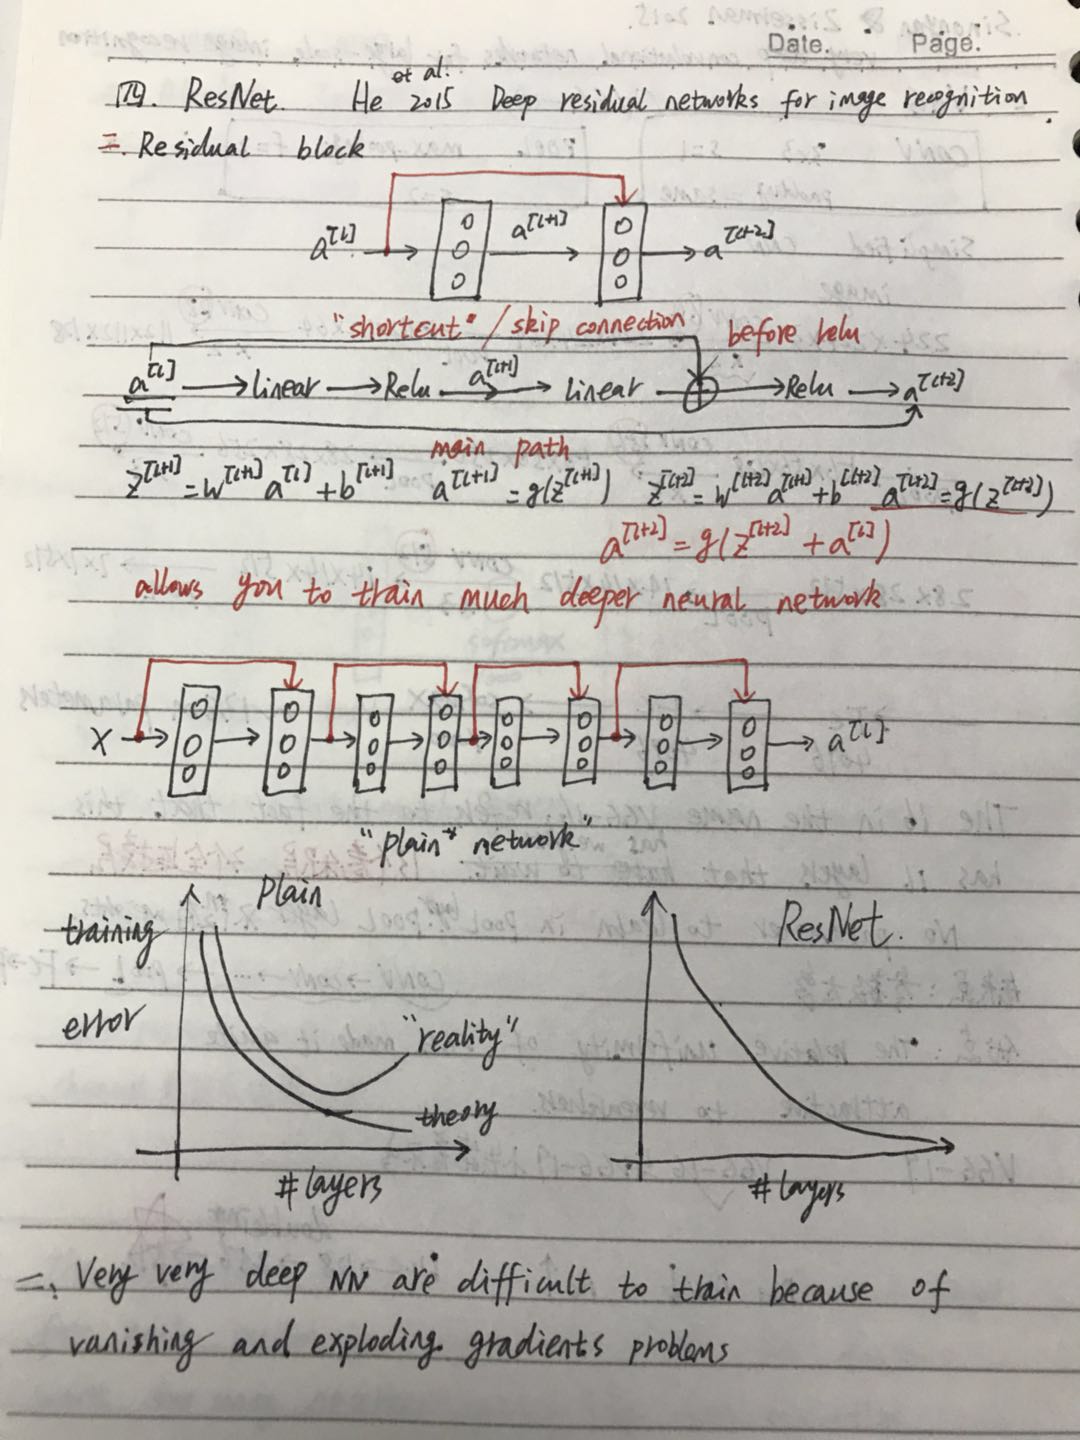 Date. Page.
四. ResNet. He et al. 2015 Deep residual networks for image recognition.
Residual block
a[l] a[l+1] a[l+2]
"shortcut" / skip connection before relu
a[l] → linear → Relu a[l+1] → linear ⊕ → Relu → a[l+2]
main path
z[l+1] = w[l+1] a[l] + b[l+1] a[l+1] = g(z[l+1]) z[l+2] = w[l+2] a[l+1] + b[l+2] a[l+2] = g(z[l+2])
a[l+2] = g(z[l+2] + a[l])
allows you to train much deeper neural network
X → a[l]
"plain" network"
Plain
training
error
"reality"
theory
# layers
ResNet.
# layers
二. Very very deep NN are difficult to train because of
vanishing and exploding gradients problems